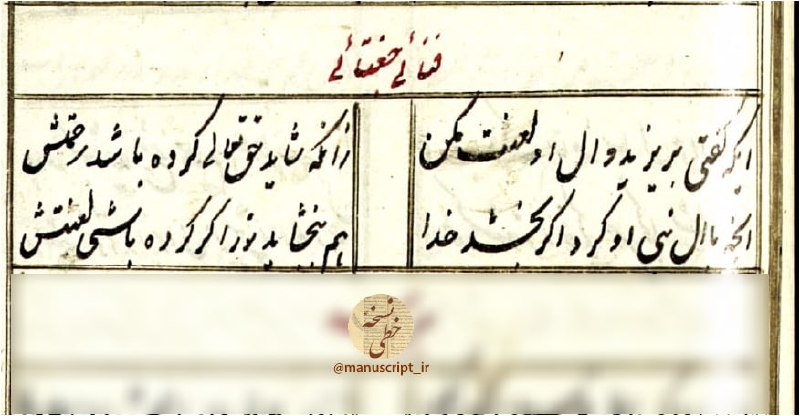 فنائی جغتائی
ایکه گفتی بر یزید و ال او لعنت مکن
زانکه شاید حق تعالی کرده باشد رحمتش
انچه با ال نبی او کرد اگر بخشد خدا
هم ببخشاید تو را گر کرده باشی لعنتش
نسخه خطی
@manuscript_ir